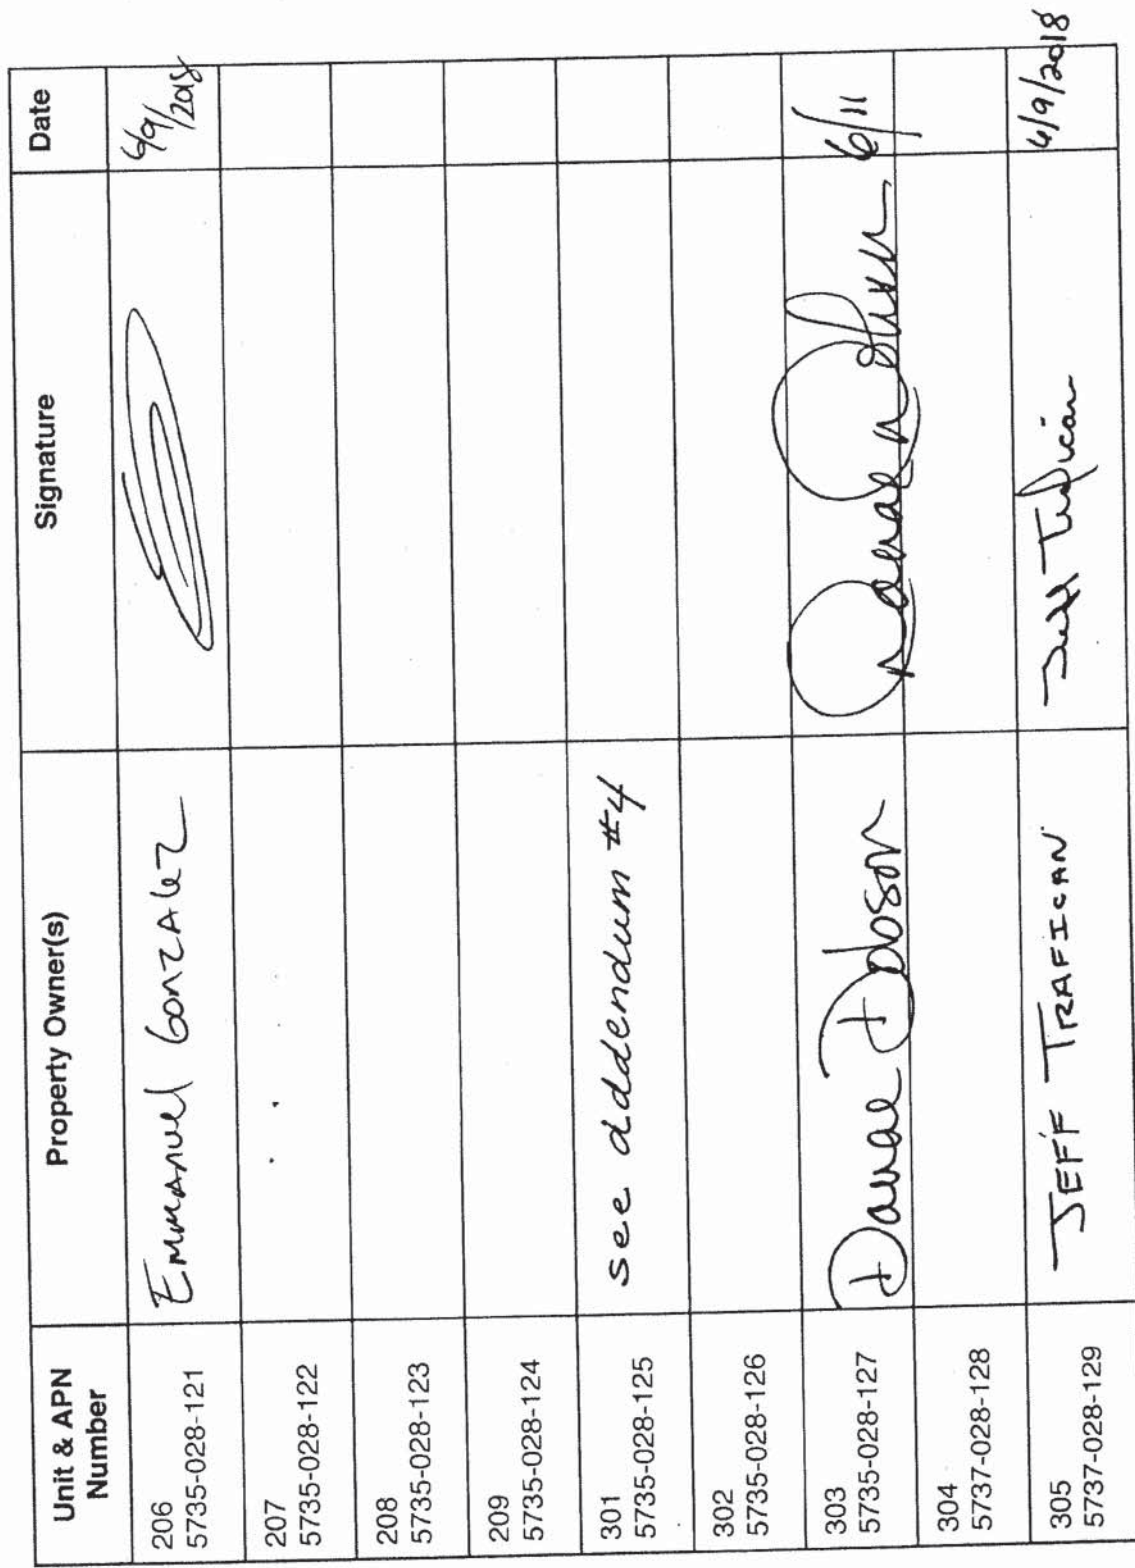 Unit & APN
Number
Property Owner(s)
Signature
Date
206
5735-028-121
Emmanuel Gonzalez
6/9/2018
207
5735-028-122
208
5735-028-123
209
5735-028-124
301
5735-028-125
see addendum #4
302
5735-028-126
303
5735-028-127
Danae Dobson
Danae Dobson
6/11
304
5737-028-128
305
5737-028-129
JEFF TRAFICAN
Jeff Trafican
6/9/2018